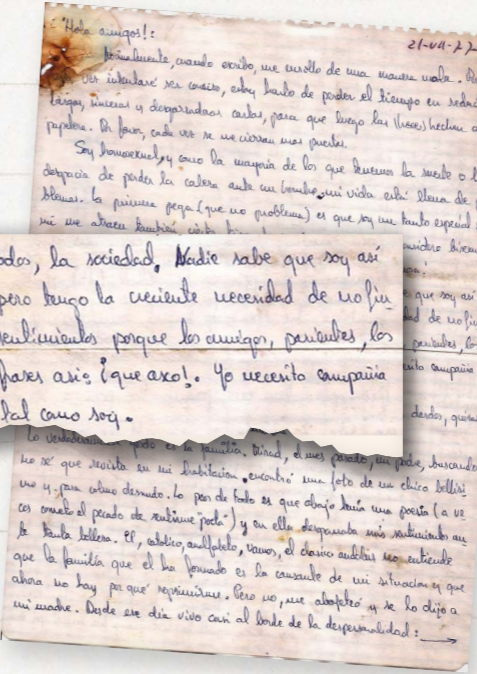 "Hola amigos!:
21-VII-77
Normalmente, cuando escribo, me enrollo de una manera mala.
vez intentaré ser conciso, estoy harto de perder el tiempo en
largas, sinceras y desgarradoras cartas, para que luego las (haces) hechan a
papelera. Por favor, cada vez se me cierran mas puertas.
Soy homosexual, y como la mayoría de los que tenemos la suerte o l
desgracia de perder la cabeza ante un hombre, mi vida está llena de
blemas. La primera pega (que no problema) es que soy un tanto especial
mi me atraen también
odos, la sociedad. Nadie sabe que soy así
pero tengo la creciente necesidad de no fin
sentimientos porque los amigos, parientes, los
frases asi: ¡que asco!. Yo necesito compañia
tal como soy.
que soy así
dad de no fin
parientes, lo
ito compañia
dardos, quem
Lo verdaderamente es la familia. Mirad, el mes pasado, mi padre, buscando
no sé que revista en mi habitacion, encontró una foto de un chico bellisi
mo y para colmo desnudo. Lo peor de todo es que abajo tenía una poesía (a ve
ces cometo el pecado de sentirme "poeta") y en ella desgranaba mis sentimientos an
te tanta belleza. El, catolico, analfabeto, vamos, el clasico no entiende
que la familia que el ha formado es la causante de mi situacion y que
ahora no hay por qué reprimirme. Pero no, me abofeteó y se lo dijo a
mi madre. Desde ese dia vivo casi al borde de la despersonalidad: →